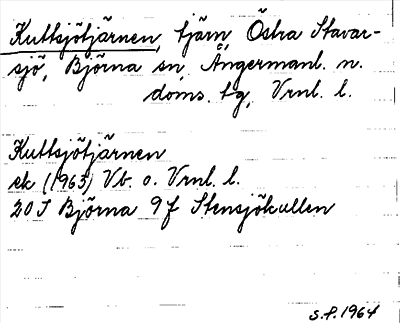 Kuttsjötjärnen, tjärn, Östra Stavar-
sjö, Björna sn, Ångermanl. n.
doms. tg, Vrnl. l.
Kuttsjötjärnen
ek (1963) Vb. o. Vrnl. l.
20 J Björna 9 f Stensjökullen
S.P. 1964